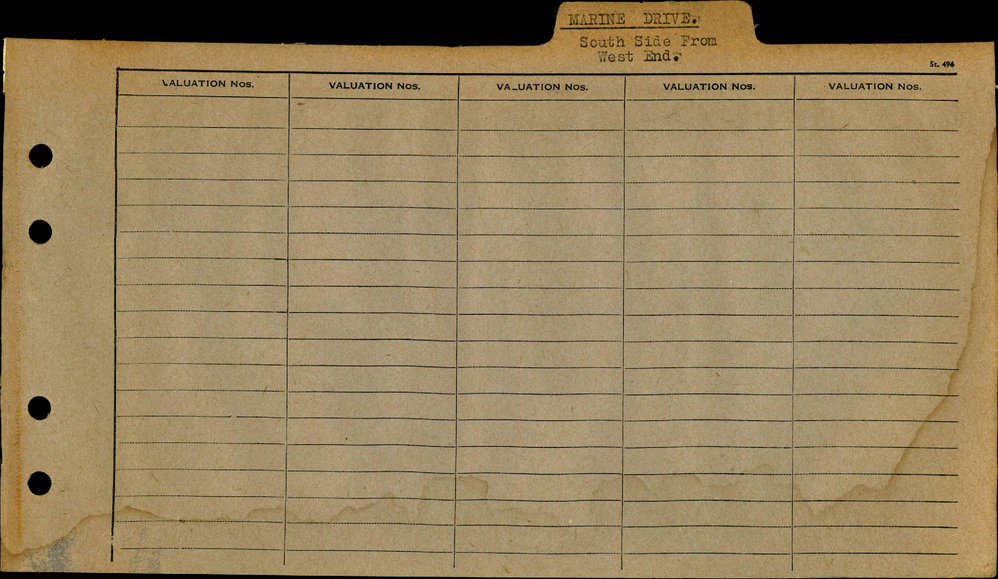 MARINE DRIVE.
South Side From
West End.
St. 496
VALUATION Nos. VALUATION Nos. VALUATION Nos. VALUATION Nos. VALUATION Nos.